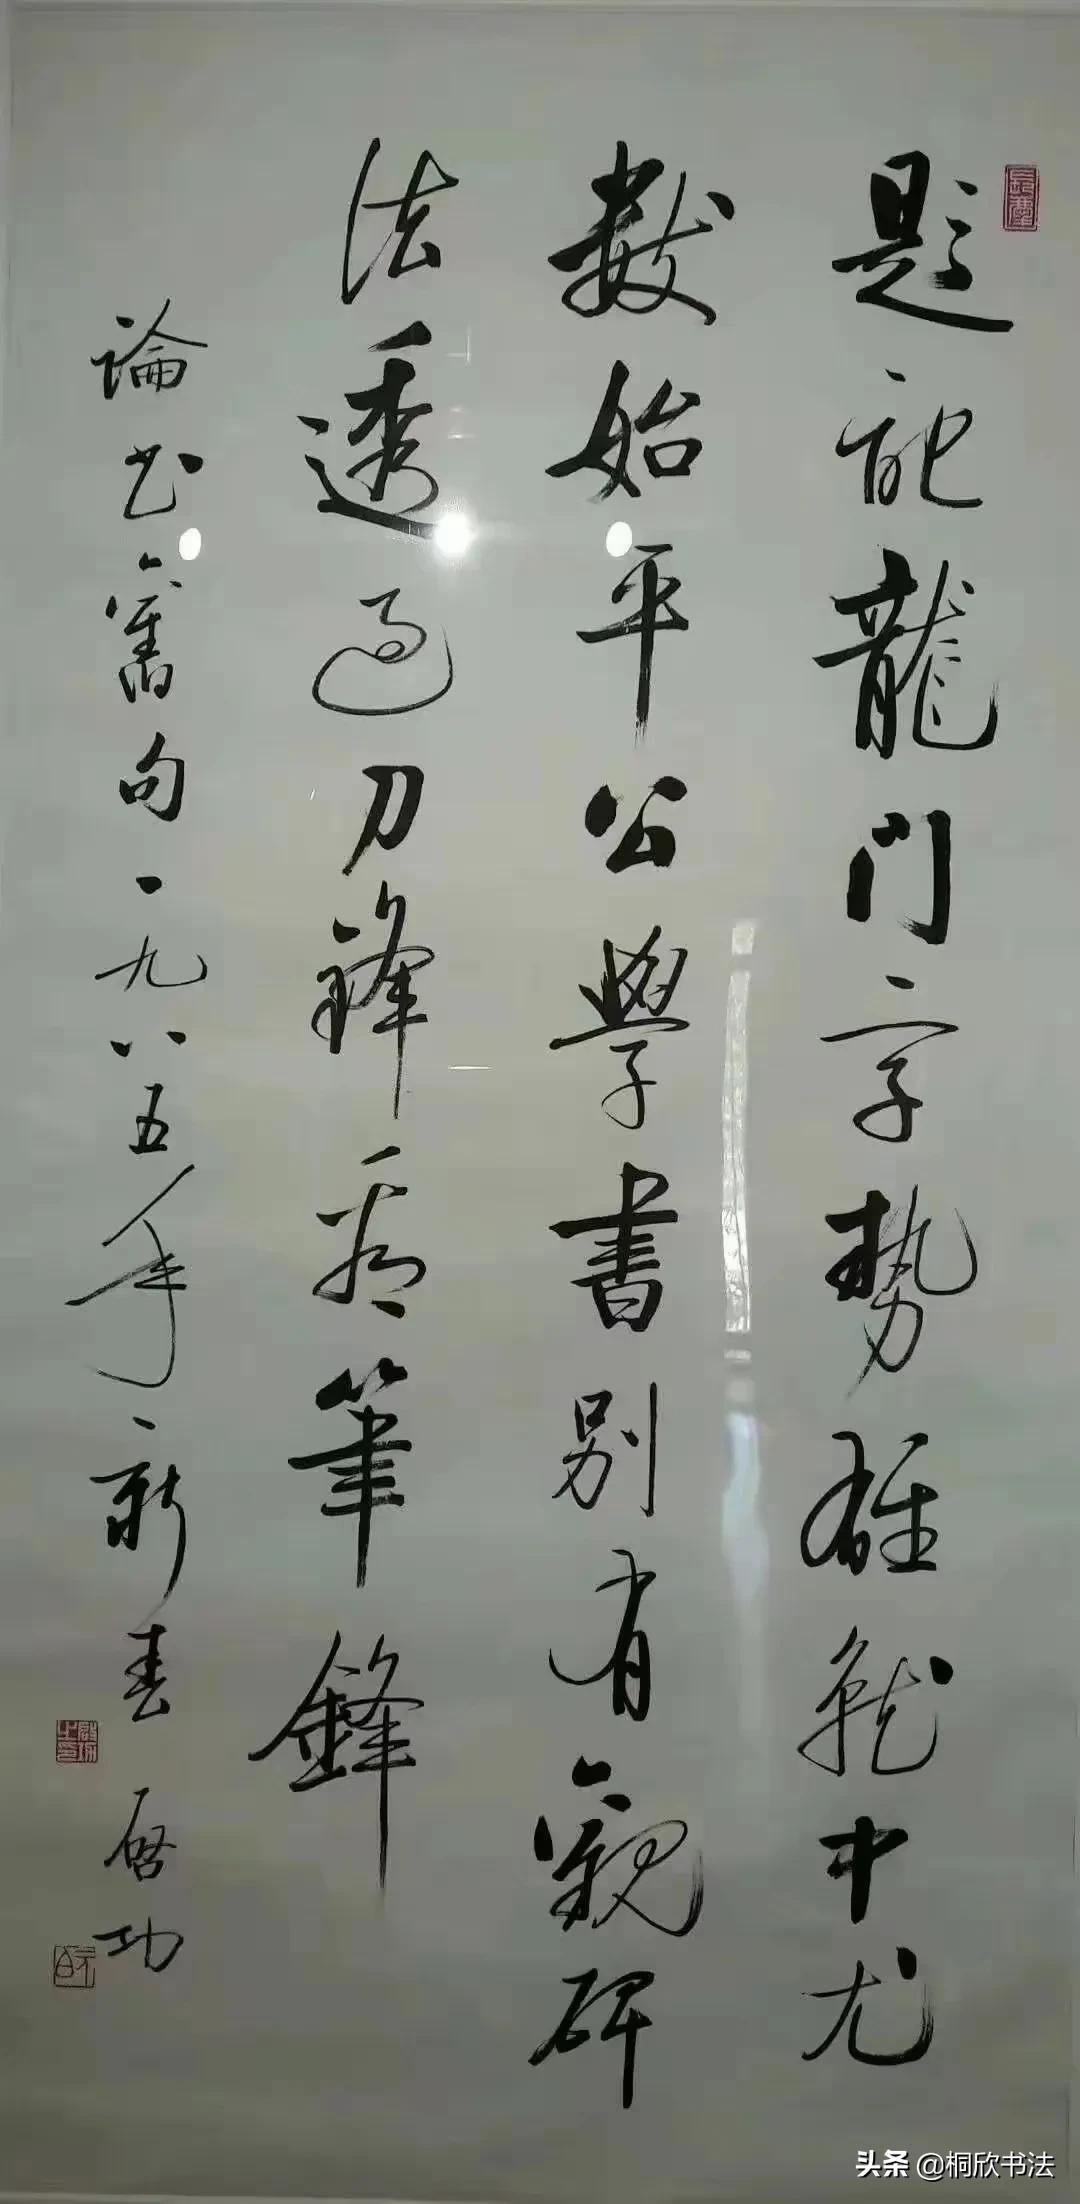 題記龍門字勢雄就中尤
數始平公學書別有觀碑
法透過刀鋒看筆鋒
論书舊句一九八五年新春 启功
啟功之印
元白
头条 @桐欣书法